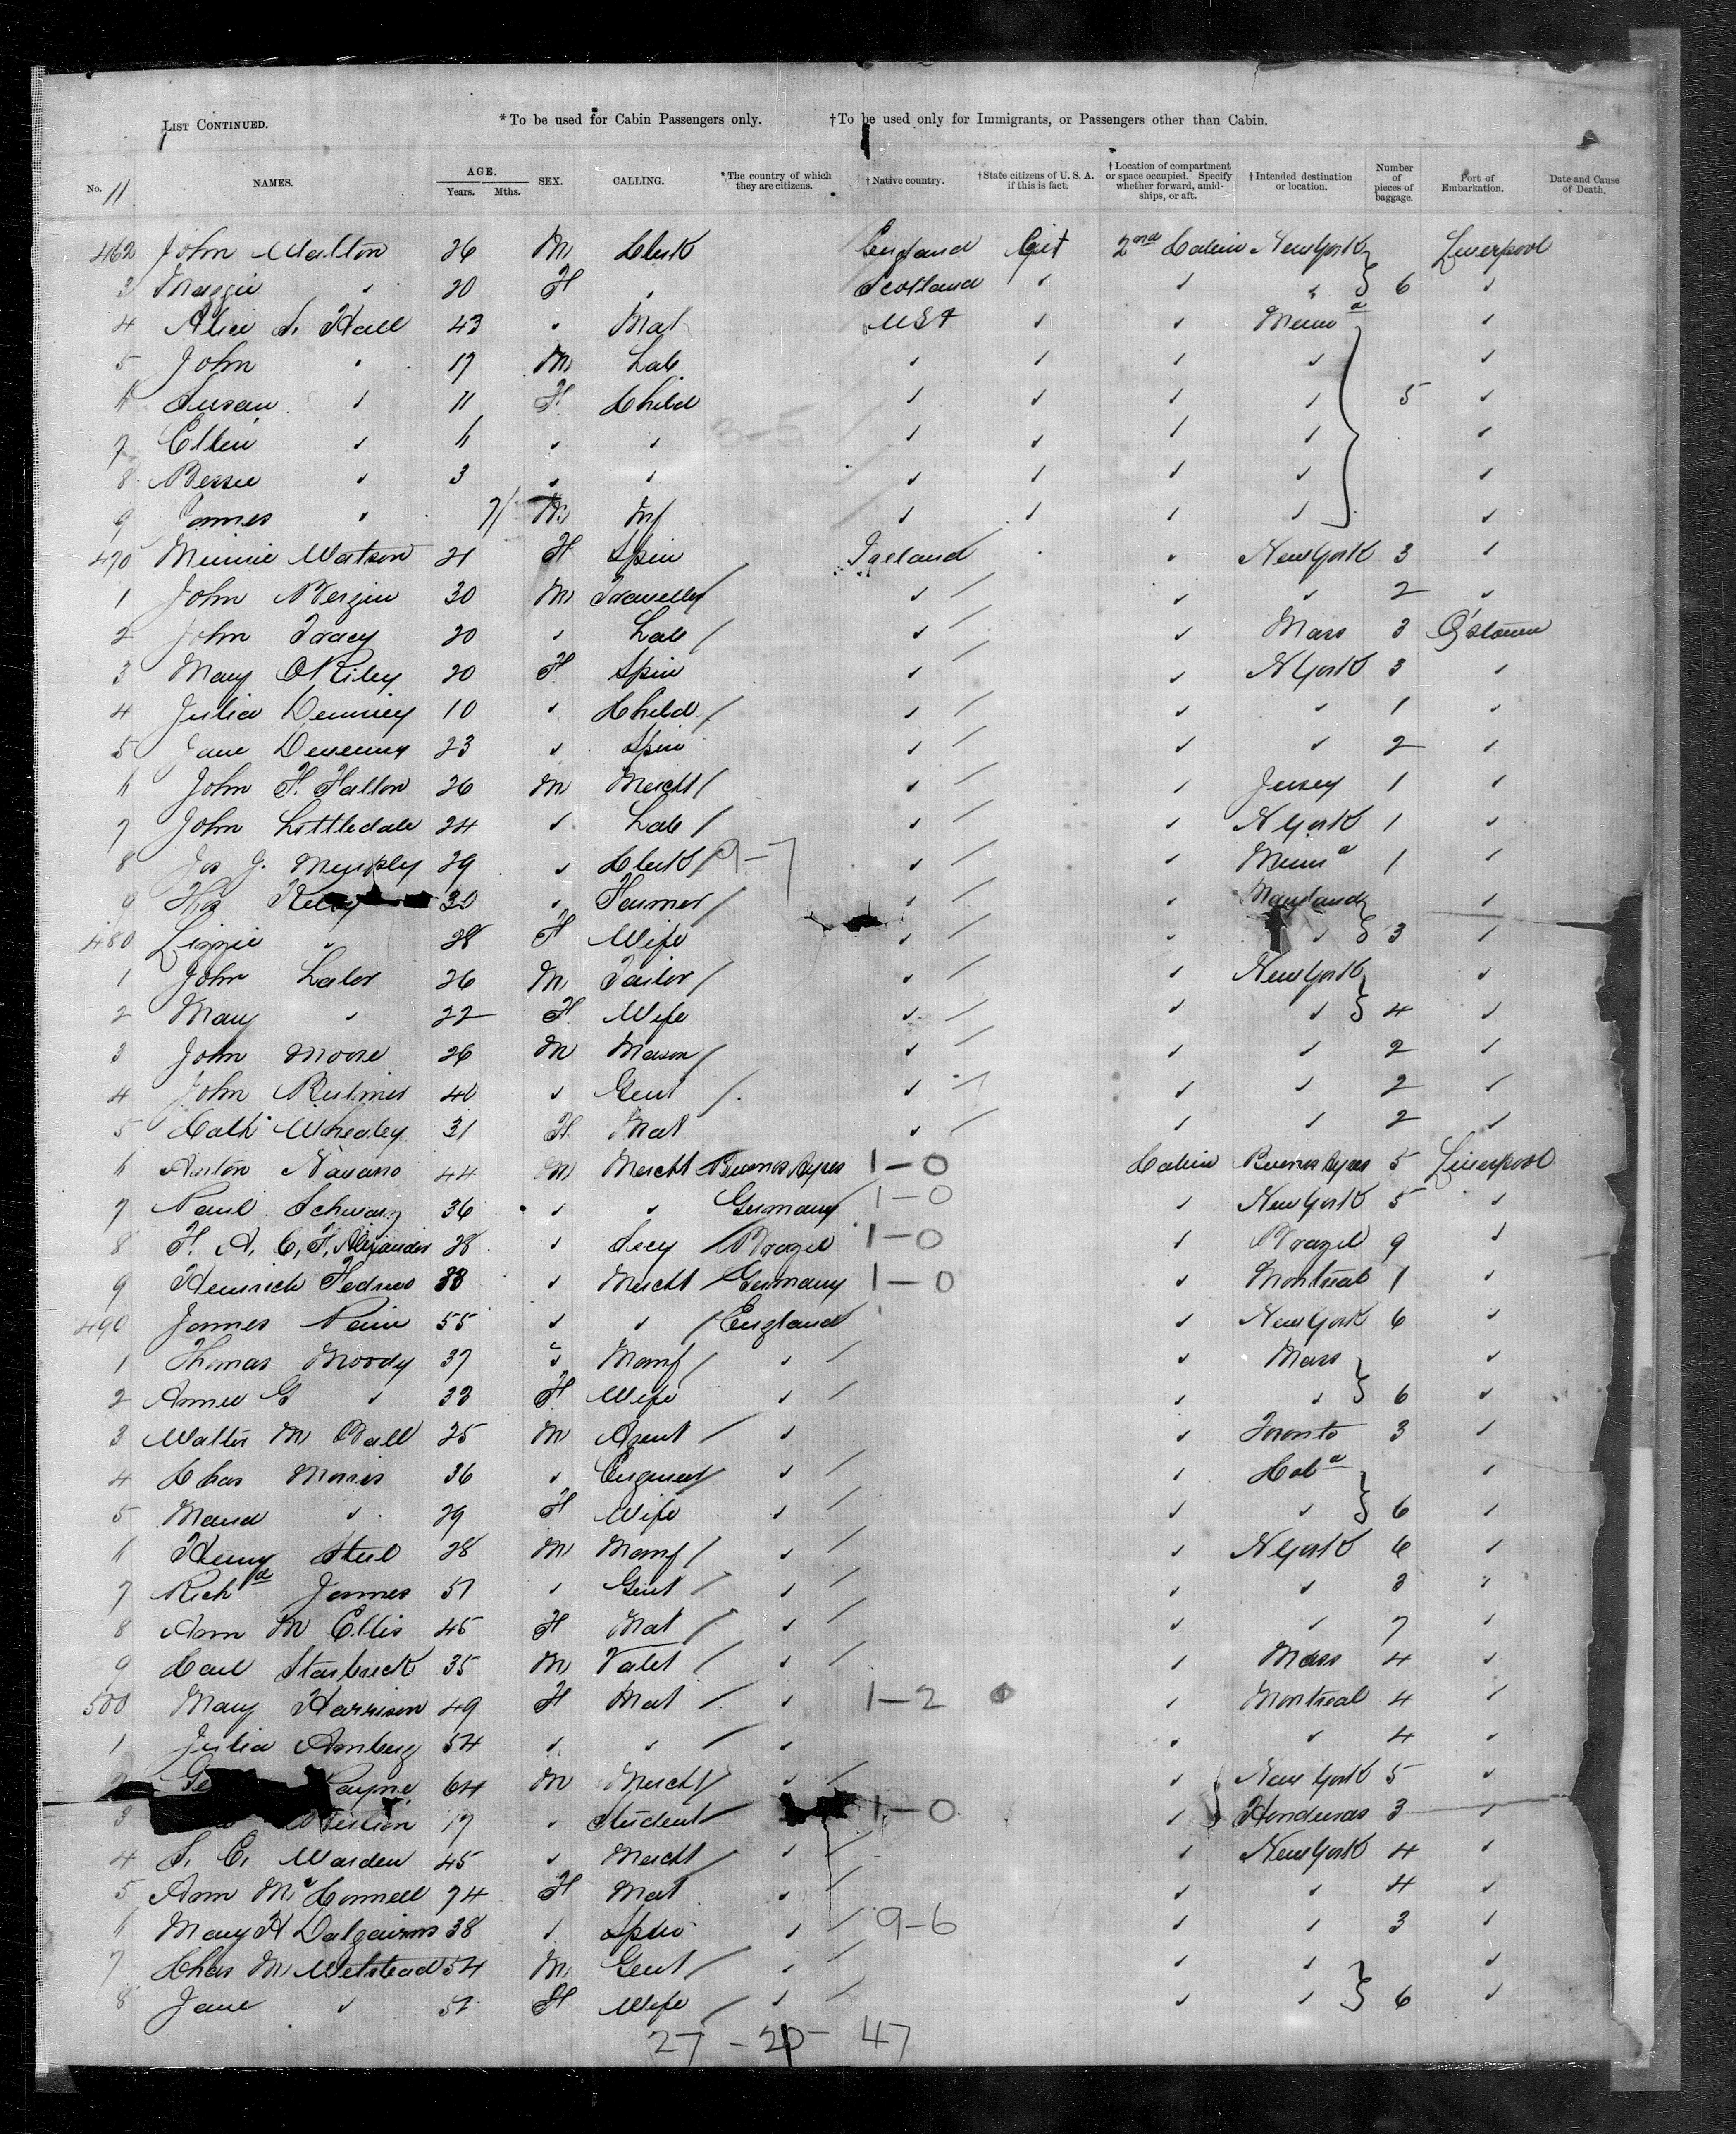 LIST CONTINUED. *To be used for Cabin Passengers only. †To be used only for Immigrants, or Passengers other than Cabin.
No. 11 NAMES. AGE. Years. Mths. SEX. CALLING. *The country of which they are citizens. †Native country. †State citizens of U. S. A. if this is fact. †Location of compartment or space occupied. Specify whether forward, amidships, or aft. †Intended destination or location. Number of pieces of baggage. Port of Embarkation. Date and Cause of Death.
462 John Walton 26 M Clerk England Cit 2nd Cabin New York Liverpool
3 Maggie " 20 F " Scotland " " " 6 "
4 Alice S. Hall 43 " Mat USA " " "
5 John " 17 M Lab " " " " "
6 Susan " 11 F Child " " " " 5 "
7 Ellen " 6 " " " " " " "
8 Bessie " 3 " " " " " " "
9 James " M Inf " " " " "
470 Minnie Watson 21 F Spin Ireland " New York 3 "
1 John Bergin 30 M " " " 2 "
2 John Tracy 20 " Lab / " / " Mass 3 Q'stown
3 Mary O'Riley 20 F Spin " / " N York 3 "
4 Julia 10 " Child / " / " " 1 "
5 Jane 23 " Spin " / " " 2 "
6 John F. Fallon 26 M Mercht / " / " Jersey 1 "
7 John Littledale 24 " Lab / " / " N York 1 "
8 Jas J. 29 " Clerk / 9-7 " / " 1 "
9 30 " Farmer / " / " Maryland "
480 Lizzie " 28 F Wife " / " " 3 "
1 John Lalor 26 M Tailor / " / " New York "
2 Mary " 22 F Wife " / " " 4 "
3 John Moore 26 M Mason / " / " " 2 "
4 John 40 " Gent / " / " " 2 "
5 Cath Whealey 31 F Mat " / " " 2 "
6 Anton Navano 44 M Mercht Buenos Ayres 1-0 Cabin Buenos Ayres 5 Liverpool
7 Paul Schwarz 36 " " Germany / 1-0 " New York 5 "
8 F. A. C. F. Alexander 28 " Secy / Brazil 1-0 " Brazil 9 "
9 Heinrich 33 " Mercht / Germany 1-0 " Montreal 1 "
490 James 55 " " / England " New York 6 "
1 Thomas Moody 37 " Manf / " / " Mass "
2 Annie G " 33 F Wife " / " " 6 "
3 Walter M Ball 25 M Agent / " " Toronto 3 "
4 Chas Morris 36 " Engineer / " / " "
5 Maud " 29 F Wife " / " " 6 "
6 Henry Steel 28 M Manf / " / " N York 6 "
7 Richd James 57 " Gent / " / " " 3 "
8 Ann M Ellis 45 F Mat / " / " " 7 "
9 Carl Starbuck 35 M Valet / " / " Mass 4 "
500 Mary Harrison 49 F Mat / " 1-2 " Montreal 4 "
1 Julia Amberg 54 " " / " " " 4 "
2 Payne 64 M Mercht / " / " New York 5 "
3 17 " Student 1-0 " Honduras 3 "
4 S. C. Warden 45 " Mercht / " / " New York 4 "
5 Ann McConnell 74 F Mat " / " " 4 "
6 Mary H Dalgairns 38 " Spin " / 9-6 " " 3 "
7 Chas M. Welstead 54 M Gent / " / " " "
8 Jane " 52 F Wife / " / " " 6 "
27 - 20 - 47